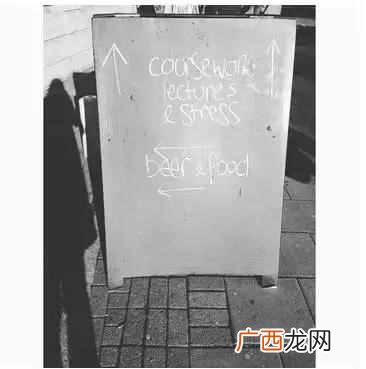 coursework
lectures
& stress
beer & food
广西龙网